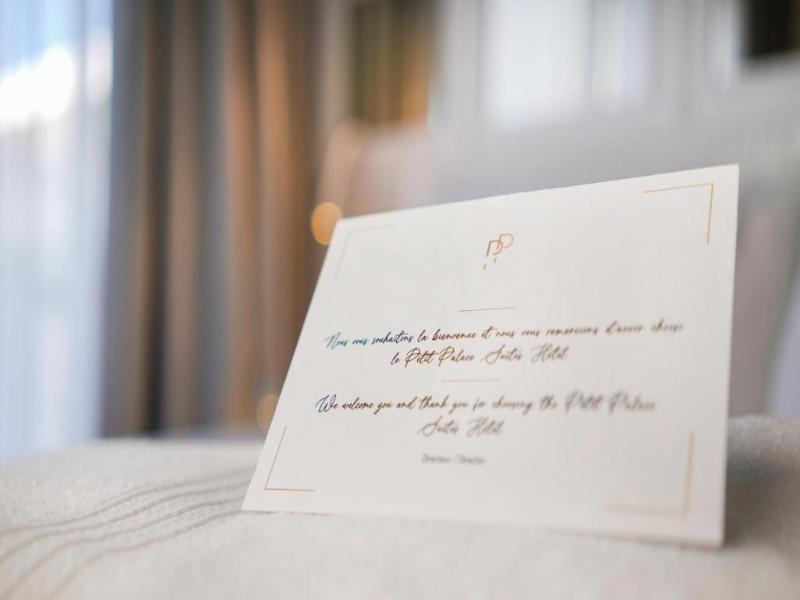 PP
Nous vous souhaitons la bienvenue et nous vous remercions d'avoir choisi
le Petit Palace Suites Hôtel
We welcome you and thank you for choosing the Petit Palace
Suites Hotel
Directeur / Director